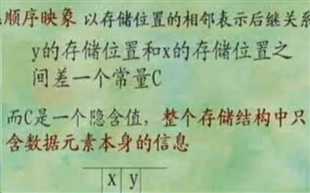 顺序映象 以存储位置的相邻表示后继关系
y的存储位置和x的存储位置之
间差一个常量C
而C是一个隐含值，整个存储结构中只
含数据元素本身的信息
x y